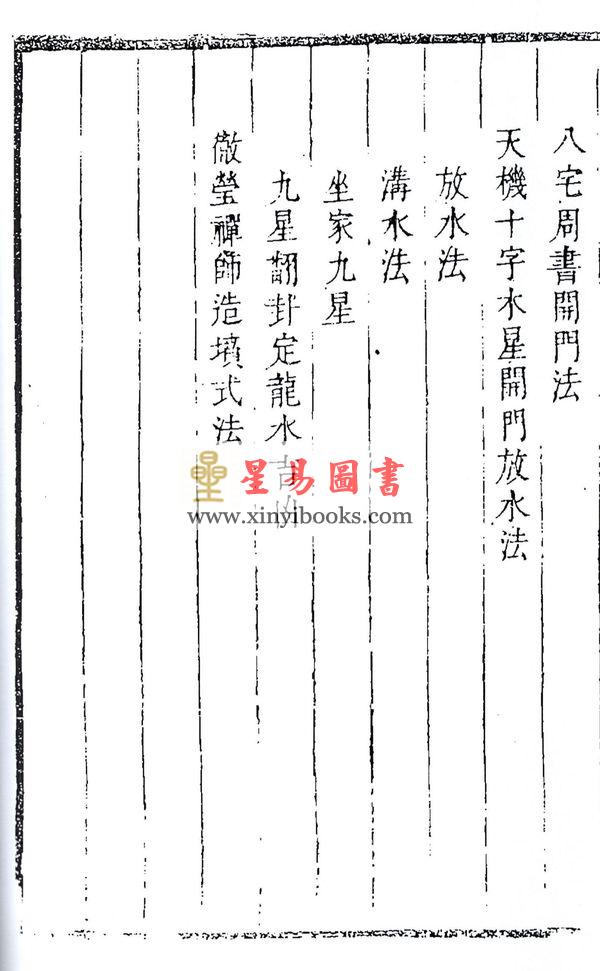 八宅周書開門法
天機十字水星開門放水法
放水法
溝水法
坐家九星
九星翻卦定龍水吉凶
徹瑩禪師造墳式法
星易圖書
www.xinyibooks.com